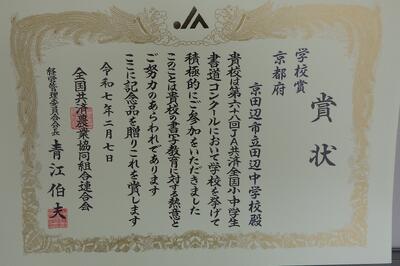 JA
賞状
学校賞
京都府
京田辺市立田辺中学校殿
貴校は第六八回JA共済全国小中学生
書道コンクールにおいて学校を挙げて
積極的にご参加をいただきました
このことは貴校の書写教育に対する熱意と
ご努力のあらわれであります
ここに記念品を贈りこれを賞します
令和七年二月七日
全国共済農業協同組合連合会
経営管理委員会会長 青江伯夫